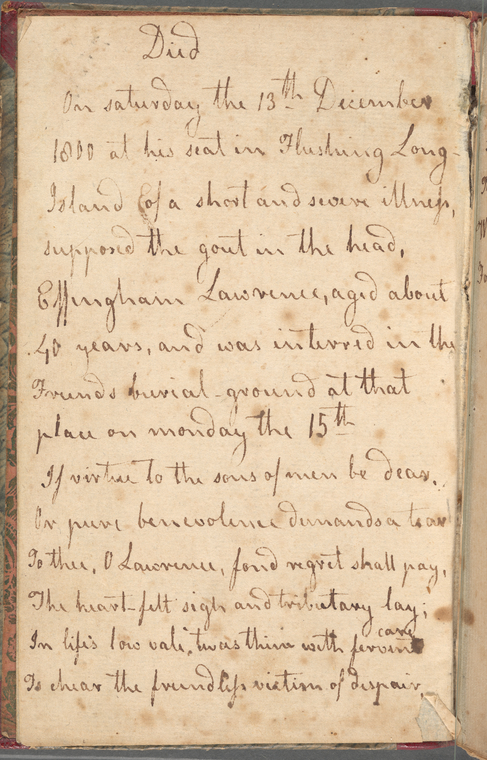 Died
On saturday the 13th December
1800 at his seat in Flushing Long-
Island (of a short and severe illness,
supposed the gout in the head,
Effingham Lawrence, aged about
40 years, and was interred in the
Friends burial-ground at that
place on monday the 15th
If virtue to the sons of men be dear,
Or pure benevolence demands a tear
To thee, O Lawrence, fond regret shall pay,
The heart-felt sigh and tributary lay;
In life's low vale, 'twas thine with fervent care
To chear the friendless victim of despair